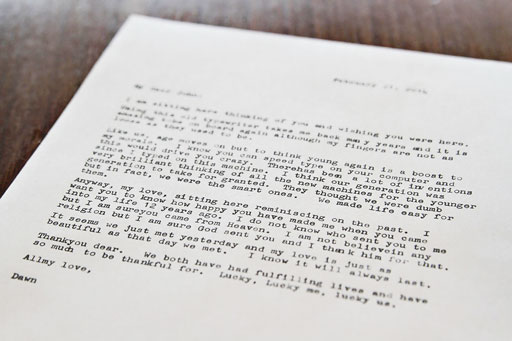 February
My
I am sitting here thinking of you and wishing you were here.
Using this old typewriter takes me back many years and it is
amazing board again although my fingers are not as
they used to be.
Like us, age moves on but to think young again is a boost to
my morale. I know you can speed type on your computer and
this would drive you crazy. Therehas been a lot of inventions
since I typed on this machine. I think our generation was
very brilliant thinking of all the new machines for the younger
generation to take for granted. They thought we were dumb
but in fact, we were the smart ones. We made life easy for
them.
Anyway, my love, sitting here reminiscing on the past. I
want you to know how happy you have made me when you came
into my life 12 years ago. I do not know who sent you to me
but I am sureyou came from Heaven. I am not
religion but I am sure God sent you and I thank him for that.
It seems we just met yesterday and my love is just as
beautiful as that day we met. I know it will always last.
Thankyou dear. We both have had fulfilling lives and have
so much to be thankful for. Lucky, Lucky me, lucky us.
Allmy love,
Dawn